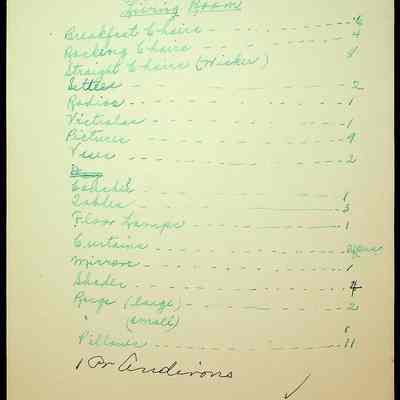 Living Room
Breakfast Chairs - - - - - - 6
Rocking Chairs - - - - - - 4
Straight Chairs (Wicker)
Settles - - - - - - 2
Radios - - - - - - 1
Victrolas - - - - - - 1
Pictures - - - - - - 9
Vases - - - - - - 2
Couches - - - - - - 1
Tables - - - - - - 3
Floor Lamps - - - - - - 1
Curtains - - - - - -
Mirrors - - - - - - 1
Shades - - - - - - 4
Rugs (large) - - - - - - 2
" (small)
Pillows - - - - - - 11
1 Pr Andirons